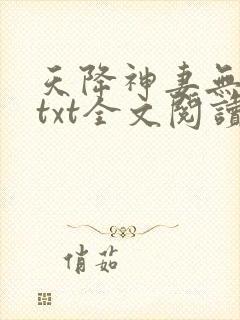 天降神妻無
txt全文閱讀
俏茹